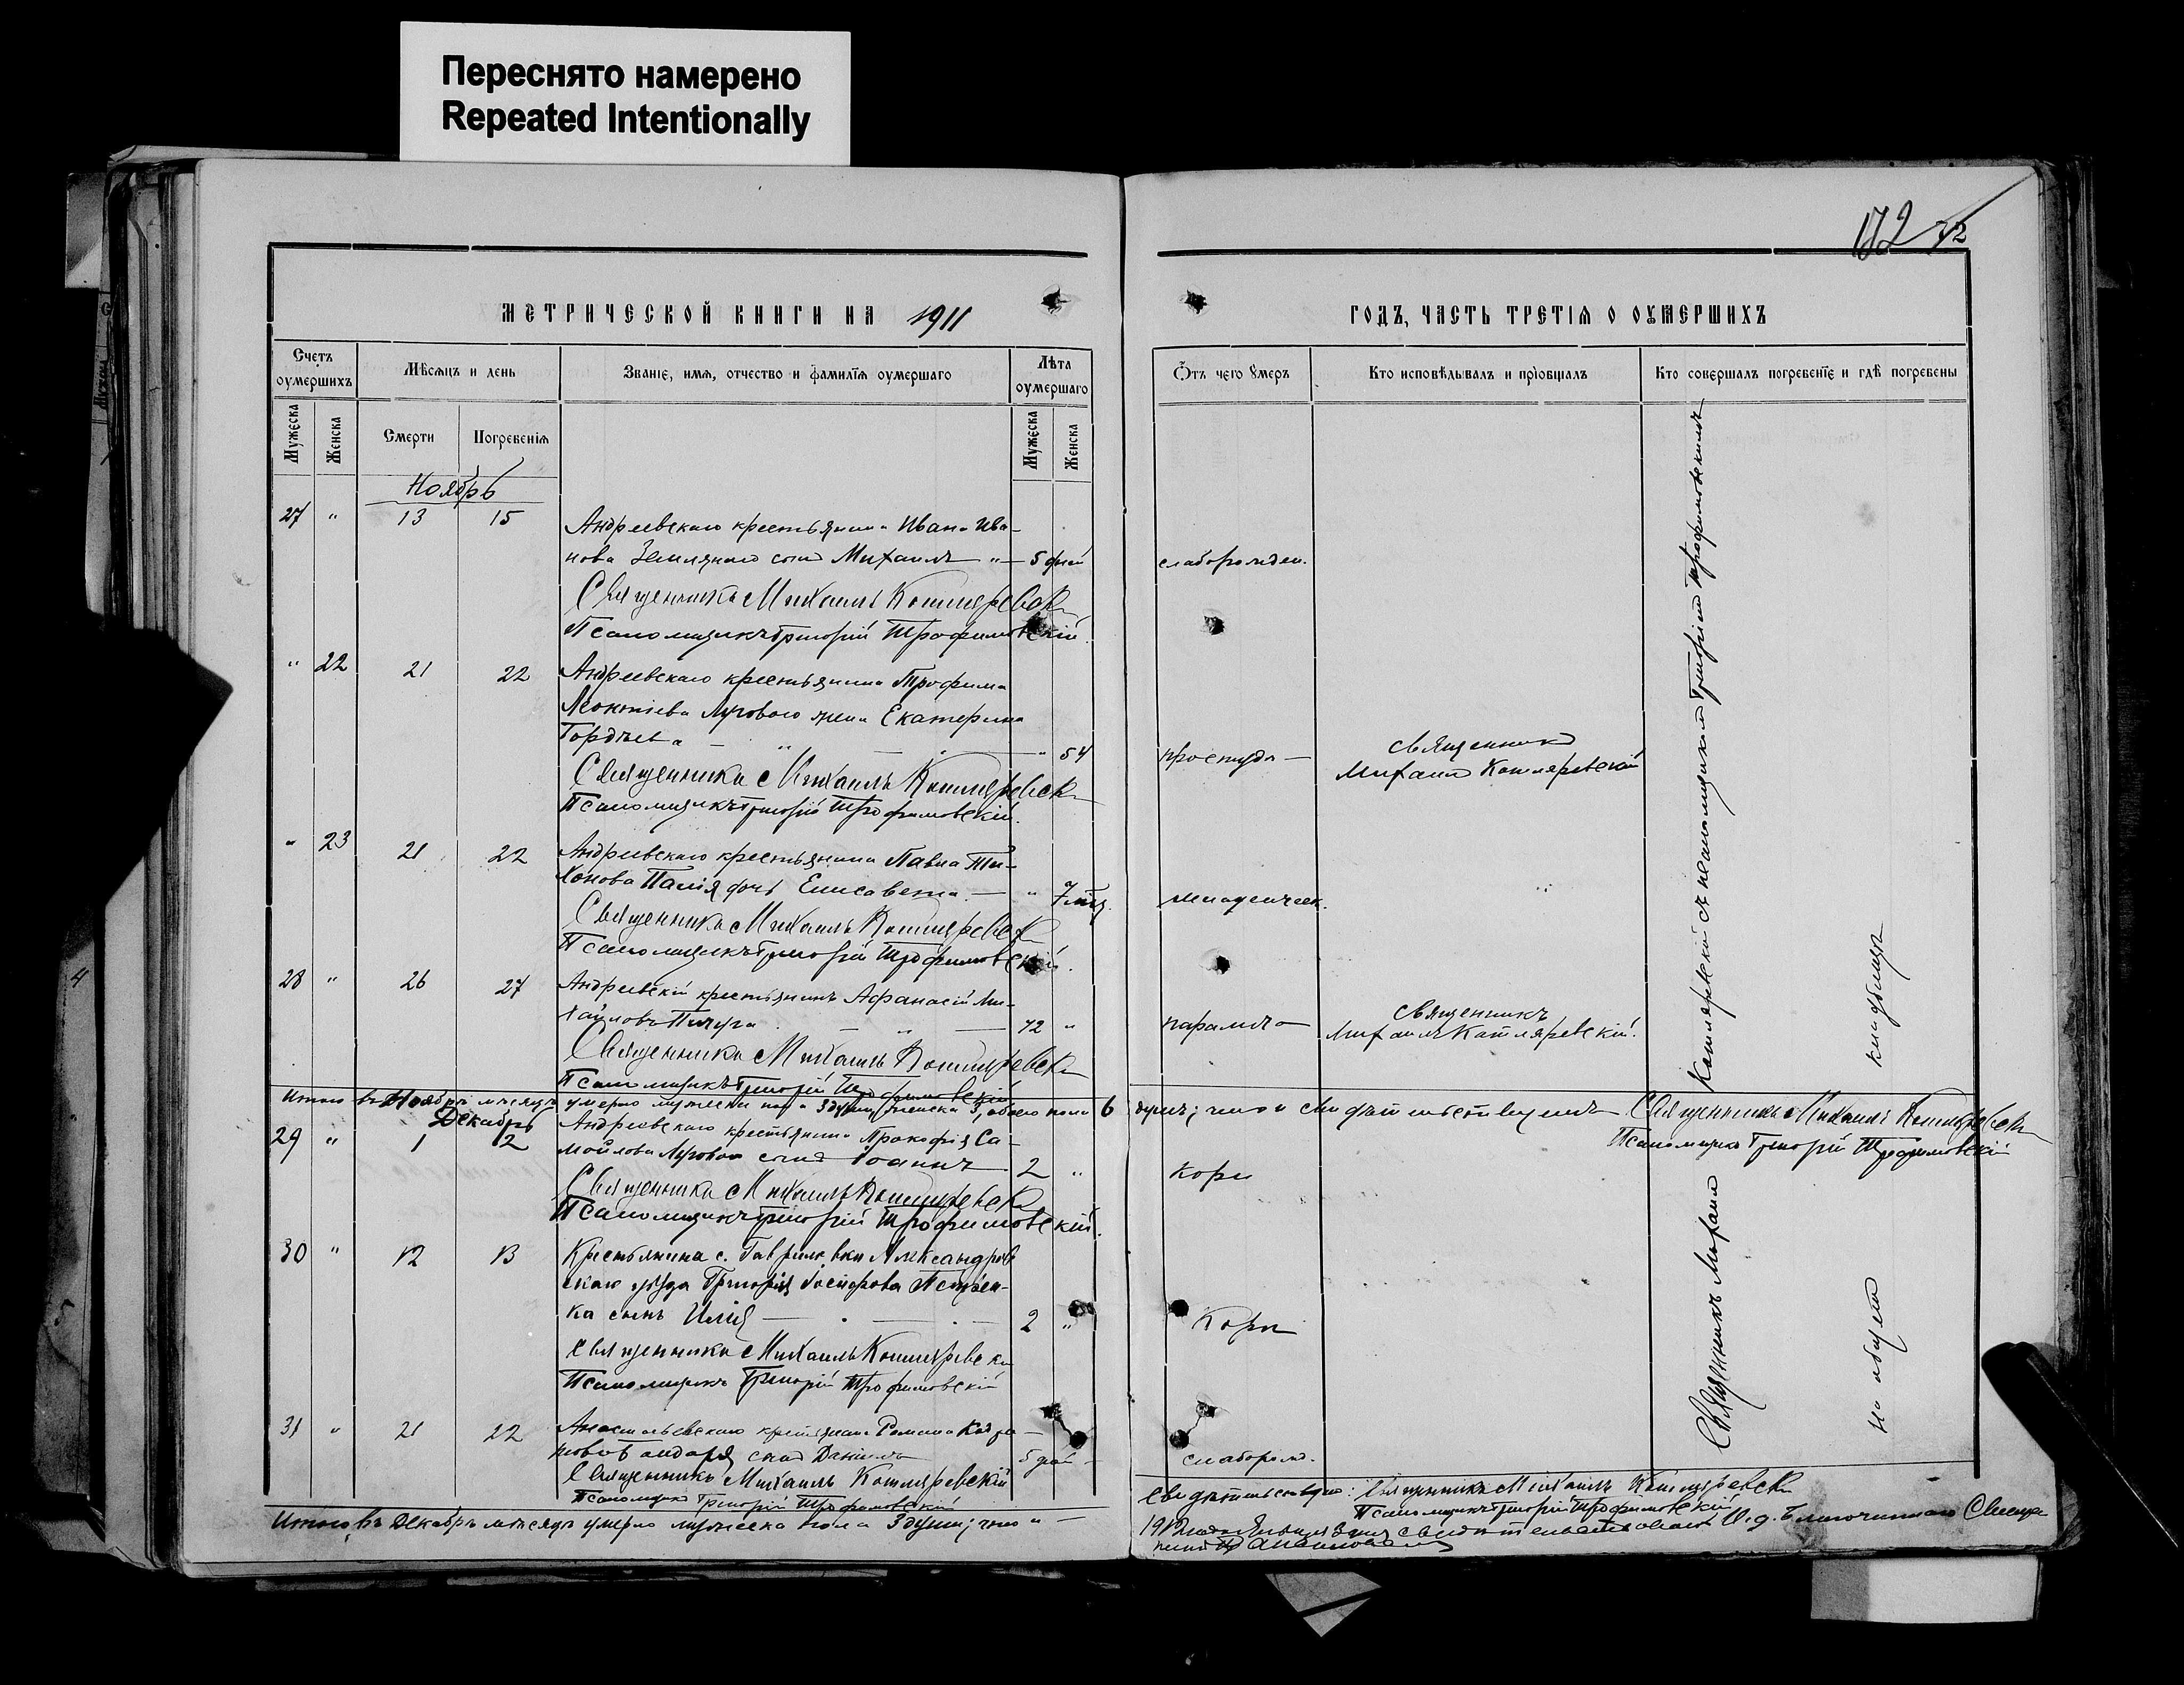 Переснято намерено
Repeated Intentionally
172 72
МЕТРИЧЕСКОЙ КНИГИ НА 1911
ГОДЪ, ЧАСТЬ ТРЕТІЯ О ОУМЕРШИХЪ
Счетъ оумершихъ
Мѣсяцъ и день
Званіе, имя, отчество и фамилія оумершаго
Лѣта оумершаго
Отъ чего умеръ
Кто исповѣдывалъ и пріобщалъ
Кто совершалъ погребеніе и гдѣ погребены
Мужеска
Женска
Смерти
Погребенія
Мужеска
Женска
Ноябрь
27 " 13 15 Андреевскаго крестьянина Ивана Ива-
нова Земляного сынъ Михаилъ " 5 дней слаборожден.
Священникъ Михаилъ Котляревскій
Псаломщикъ Григорій Трофимовскій
" 22 21 22 Андреевскаго крестьянина Трофима
Леонтіева Лугового жена Екатерина
Гордѣева " " 54 простуда
Священникъ
Михаилъ Котляревскій
Священникъ Михаилъ Котляревскій
Псаломщикъ Григорій Трофимовскій
" 23 21 22 Андреевскаго крестьянина Павла Ти-
хонова Палія дочь Елисавета " 7 мѣс. младенческ. "
Священникъ Михаилъ Котляревскій
Псаломщикъ Григорій Трофимовскій
28 " 26 27 Андреевскій крестьянинъ Афанасій Ми-
хайловъ 72 " параличъ
Священникъ
Михаилъ Котляревскій
Священникъ Михаилъ Котляревскій
Псаломщикъ Григорій Трофимовскій
Итого въ Ноябрѣ мѣсяцѣ умерло мужеска пола 3 души, женска 3, обоего пола 6 душъ; что и свидѣтельствуемъ Священникъ Михаилъ Котляревскій
Псаломщикъ Григорій Трофимовскій
Декабрь
29 " 1 2 Андреевскаго крестьянина Прокофія Са-
мойлова Лугового сынъ Іоаннъ 2 " Корь
Священникъ Михаилъ Котляревскій
Псаломщикъ Григорій Трофимовскій
30 " 12 13 Крестьянина с. Гавриловки Александров
скаго уѣзда Григорія Петрен-
ка сынъ Илія 2 " Корь
Священникъ Михаилъ Котляревскій
Псаломщикъ Григорій Трофимовскій
31 " 21 22 крестьянина Романа
сынъ Даніилъ 5 дней слаборожд.
Священникъ Михаилъ Котляревскій
Псаломщикъ Григорій Трофимовскій
Священникъ Михаилъ Котляревскій съ псаломщикомъ Григоріемъ Трофимовскимъ
на общемъ кладбищѣ
Итого въ Декабрѣ мѣсяцѣ умерло мужеска пола 3 души; что и
свидѣтельствуемъ: Священникъ Михаилъ Котляревскій
Псаломщикъ Григорій Трофимовскій
1912 года Января свидѣтельствовалъ И. д. Благочиннаго Священ